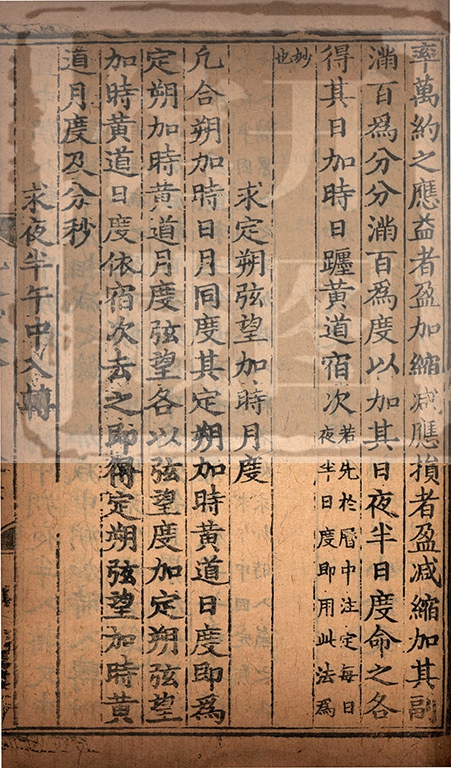 率萬約之應益者盈加縮减應損者盈减縮加其副
滿百爲分分滿百爲度以加其日夜半日度命之各
得其日加時日躔黃道宿次若先於曆中注定每日夜半日度即用此法爲
妙也
求定朔弦望加時月度
凡合朔加時日月同度其定朔加時黃道日度即爲
定朔加時黃道月度弦望各以弦望度加定朔弦望
加時黃道日度依宿次去之即得定朔弦望加時黃
道月度及分秒
求夜半午中入轉